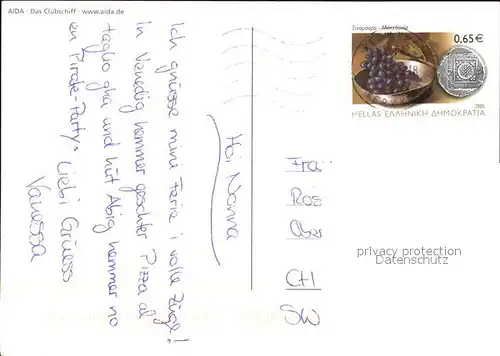 AIDA · Das Clubschiff · www.aida.de
Hoi Nonna
Ich grüsse mini Ferie i volle Züge!
In Venedig hemmer geschter Pizza al
taglio gha und hüt Abig hemmer no
en Pirate-Party.
Liebi Grüess
Vanessa
0,65 €
2005
HELLAS ΕΛΛΗΝΙΚΗ ΔΗΜΟΚΡΑΤΙΑ
Ros
CH
SW
privacy protection
Datenschutz